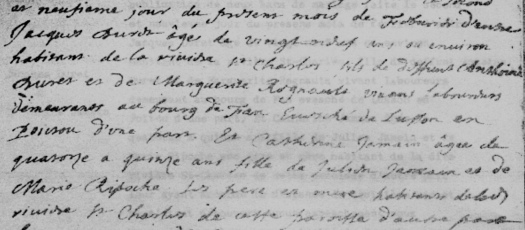 et neufieme jour du present mois de
Jacques âgés de vingt neuf ans ou environ
habitans de la riviére St Charles fils de deffunt
et de Marguerite vivans laboureurs
demeurans au bourg de Evesché de Lusson en
Poictou d'une part. Et Catherine Jamain âgée de
quatorze a quinze ans fille de Julien Jamain et de
Marie Ripoche ses pere et mere habitans de lad
riviére St Charles de cette paroisse d'autre part